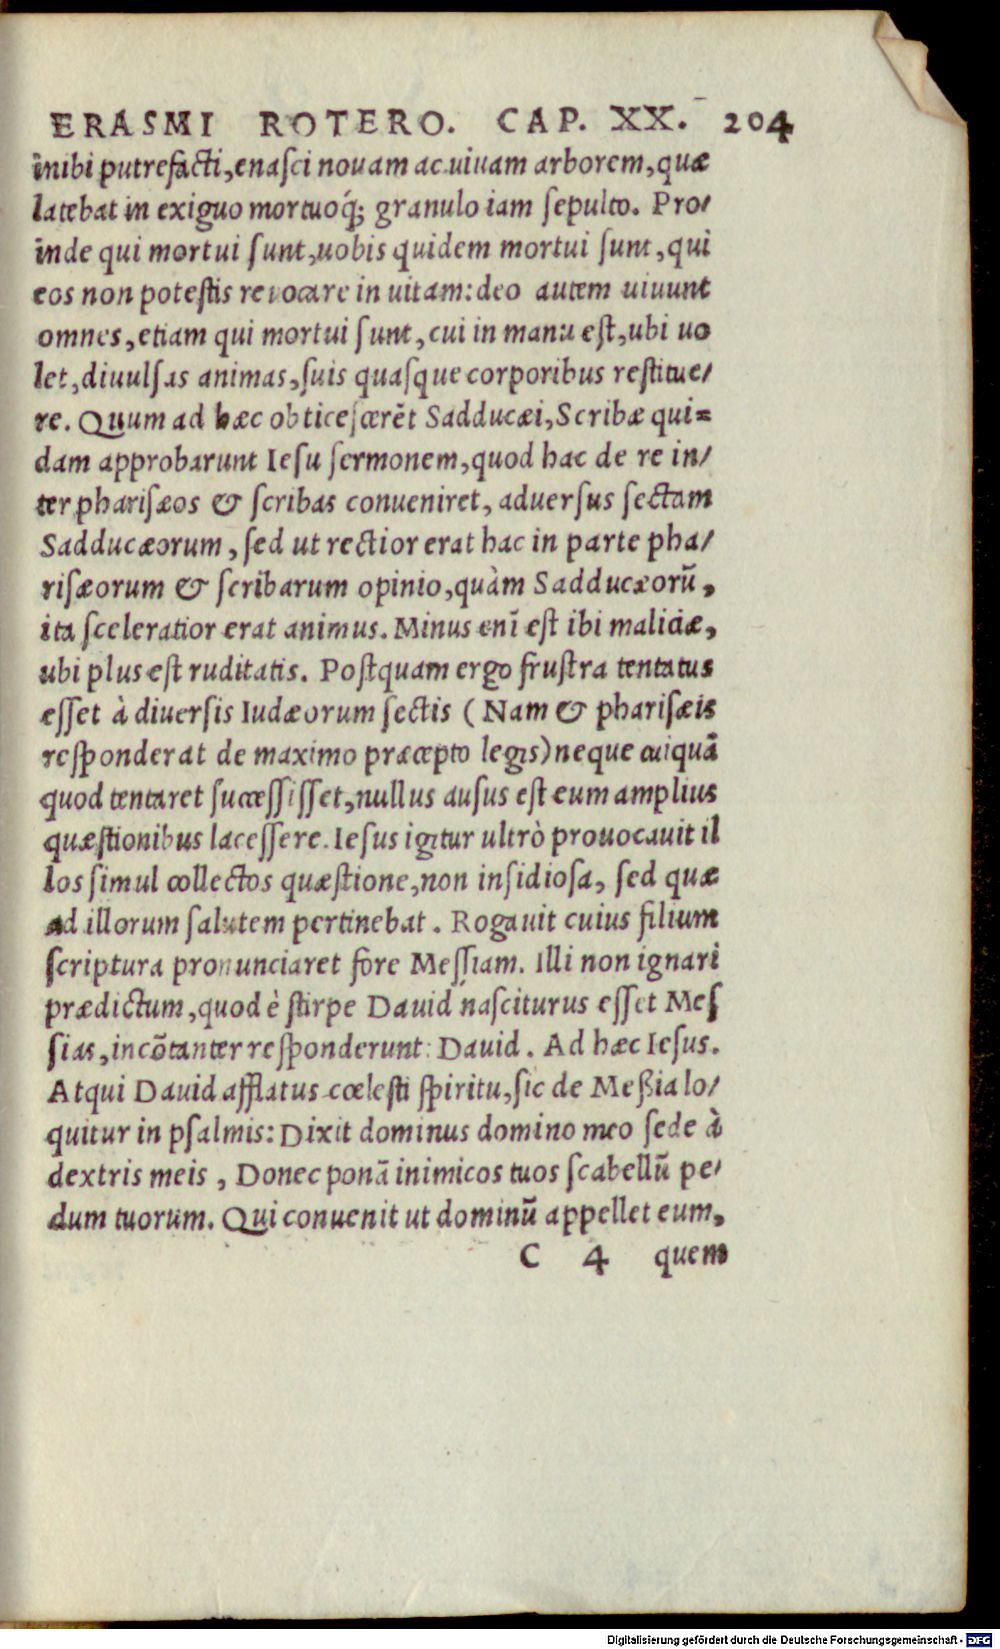 ERASMI ROTERO. CAP. XX. 204
inibi putrefacti, enasci nouam ac uiuam arborem, quæ
latebat in exiguo mortuoq́; granulo iam sepulto. Pro/
inde qui mortui sunt, uobis quidem mortui sunt, qui
eos non potestis reuocare in uitam: deo autem uiuunt
omnes, etiam qui mortui sunt, cui in manu est, ubi uo
let, diuulsas animas, suis quasque corporibus restitue/
re. Quum ad hæc obticescerẽt Sadducæi, Scribæ qui=
dam approbarunt Iesu sermonem, quod hac de re in/
ter pharisæos & scribas conueniret, aduersus sectam
Sadducæorum, sed ut rectior erat hac in parte pha/
risæorum & scribarum opinio, quàm Sadducæorũ,
ita sceleratior erat animus. Minus enĩ est ibi maliciæ,
ubi plus est ruditatis. Postquam ergo frustra tentatus
esset à diuersis Iudæorum sectis (Nam & pharisæis
responderat de maximo præcepto legis) neque cuiquã
quod tentaret successisset, nullus ausus est eum amplius
quæstionibus lacessere. Iesus igitur ultrò prouocauit il
los simul collectos quæstione, non insidiosa, sed quæ
ad illorum salutem pertinebat. Rogauit cuius filium
scriptura pronunciaret fore Messiam. Illi non ignari
prædictum, quod è stirpe Dauid nasciturus esset Mes
sias, incõtanter responderunt: Dauid. Ad hæc Iesus.
Atqui Dauid afflatus cœlesti spiritu, sic de Meßia lo/
quitur in psalmis: Dixit dominus domino meo sede à
dextris meis, Donec ponã inimicos tuos scabellũ pe/
dum tuorum. Qui conuenit ut dominũ appellet eum,
C 4 quem
Digitalisierung gefördert durch die Deutsche Forschungsgemeinschaft - DFG